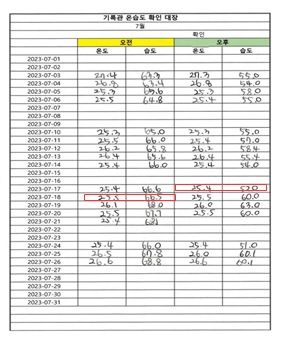 기록관 온습도 확인 대장
7월
확인
오전 오후
온도 습도 온도 습도
2023-07-01
2023-07-02
2023-07-03 27.4 63.3 27.3 55.0
2023-07-04 26.8 63.4 26.8 54.0
2023-07-05 25.3 65.6 25.3 58.0
2023-07-06 25.5 64.8 25.4 55.0
2023-07-07
2023-07-08
2023-07-09
2023-07-10 25.3 65.0 25.3 55.0
2023-07-11 25.5 66.0 25.4 57.0
2023-07-12 26.2 65.8 26.2 58.4
2023-07-13 26.4 65.6 26.4 55.4
2023-07-14 25.4 66.0 25.4 54.0
2023-07-15
2023-07-16
2023-07-17 25.4 66.6 25.4 52.0
2023-07-18 25.5 66.5 25.5 60.0
2023-07-19 26.1 68.0 26.0 63.0
2023-07-20 25.5 67.7 25.5 60.0
2023-07-21 25.4
2023-07-22
2023-07-23
2023-07-24 25.4 66.0 25.4 51.0
2023-07-25 26.5 67.8 26.0 60.1
2023-07-26 26.6 68.8 26.6 60.1
2023-07-27
2023-07-28
2023-07-29
2023-07-30
2023-07-31